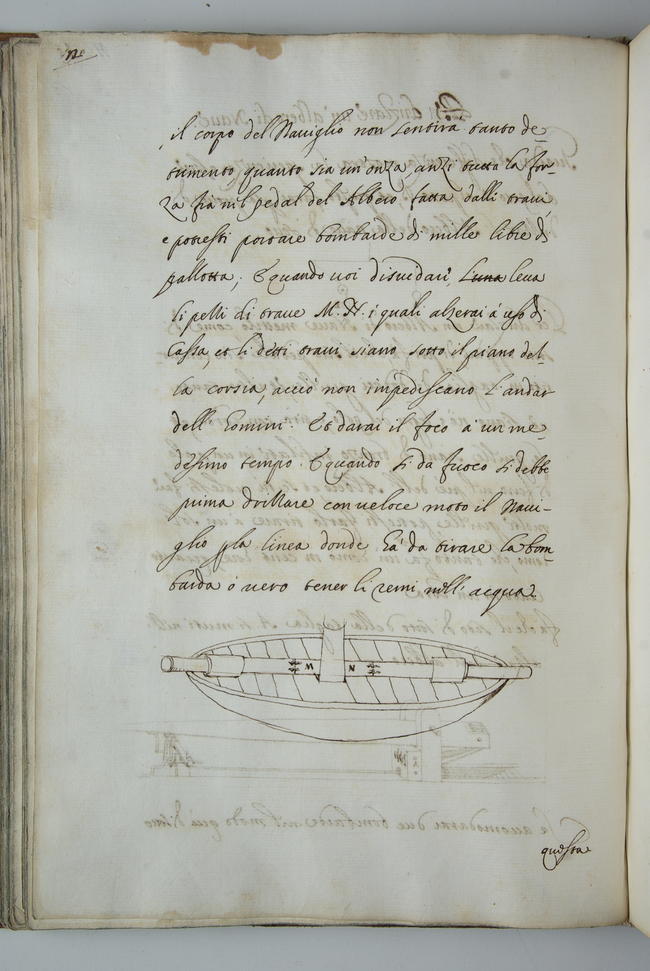 il corpo del Nauiglio non sentirà tanto de-
trimento, quanto sia un'onza, anzi tutta la for-
za fia nel pedal del Albero fatta dalli traui,
e potresti portare bombarde di mille libre di
pallotta; E quando uoi disuidari, l'una leua
li pelli di traue M. N. i quali alzerai à uso di
Cassa, et li detti traui siano sotto il piano del-
la corsia, acciò non impediscano l'andar
dell' Eomini. Et darai il foco a un me-
desimo tempo. E quando si da fuoco si debbe
prima drittare con ueloce moto il Naui-
glio p la linea donde hà da tirare la bom-
barda ò uero tener li remi nell' acqua.
M N
questa